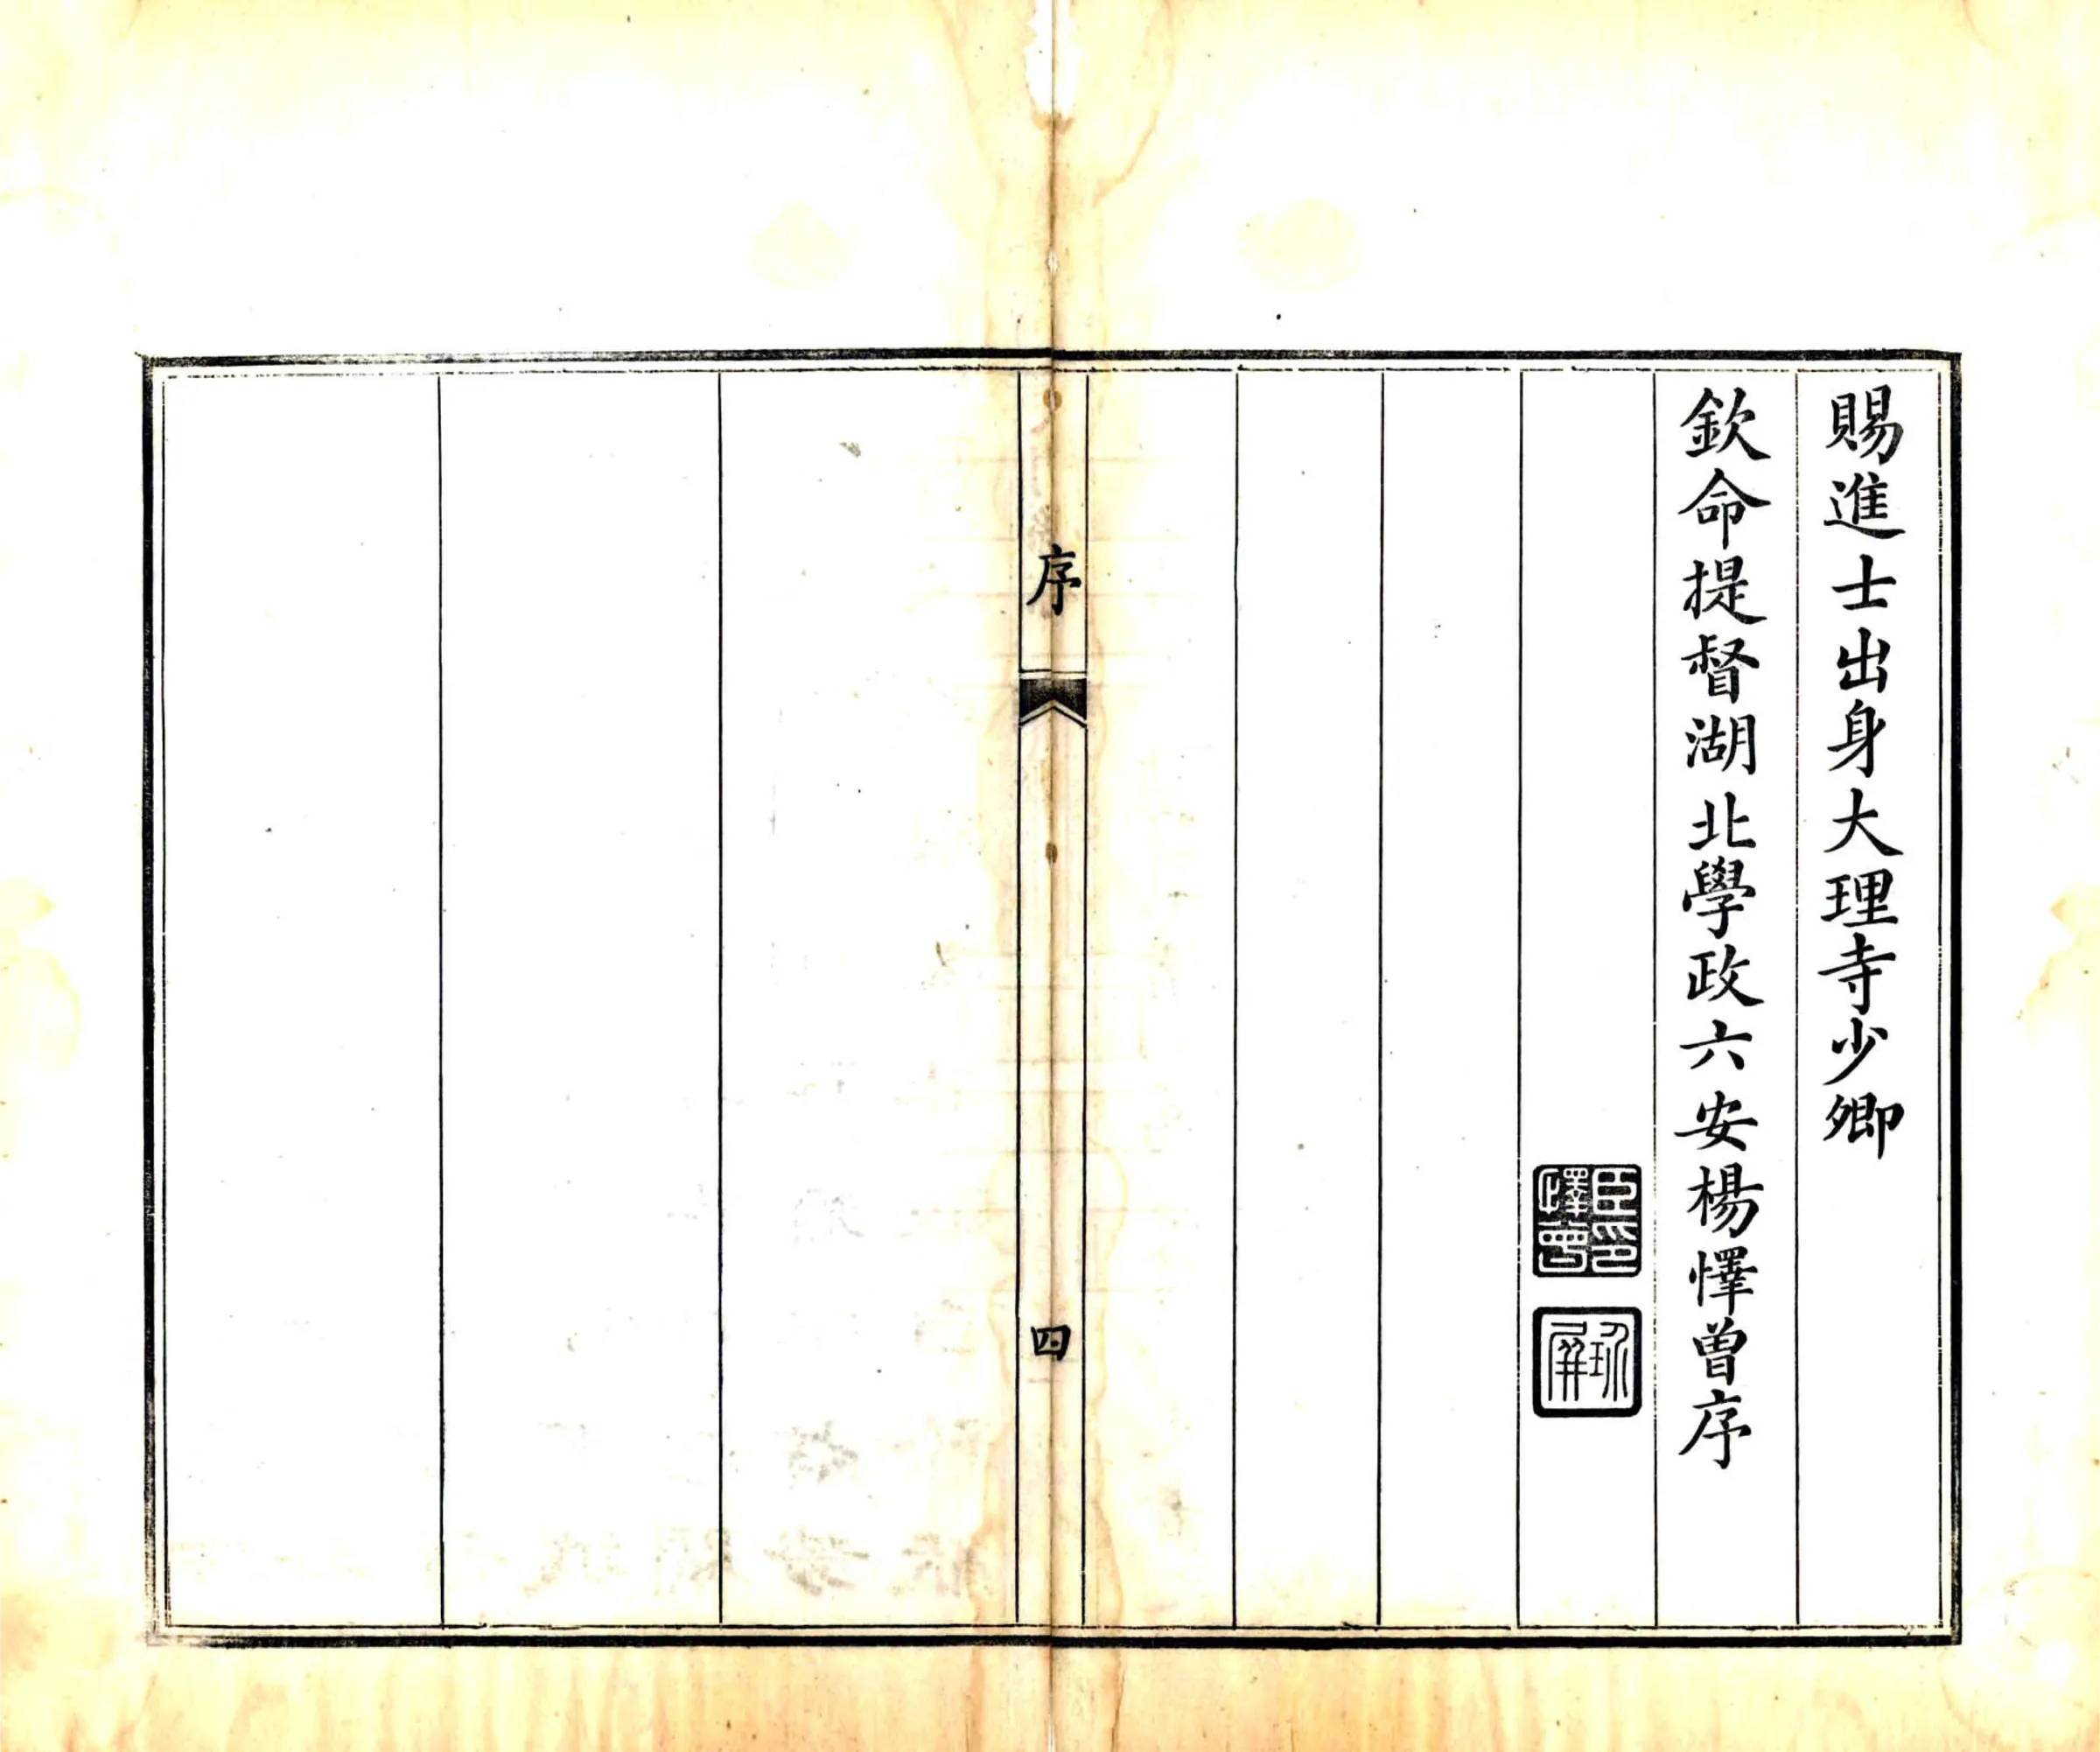 賜進士出身大理寺少卿
欽命提督湖北學政六安楊懌曾序
臣印懌曾
序
四